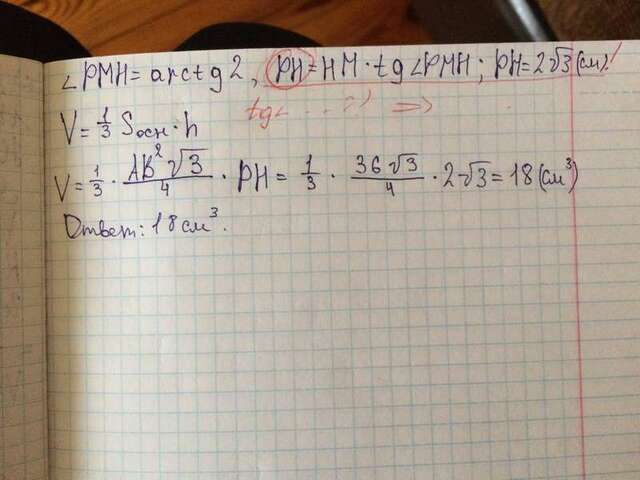 ∠PMH = arctg 2, PH = HM · tg∠PMH; PH = 2√3 (см)!
tg∠ ... ⇒
V = 1/3 Sосн · h
V = 1/3 · AB²√3/4 · PH = 1/3 · 36√3/4 · 2√3 = 18 (см³)
Ответ: 18 см³.